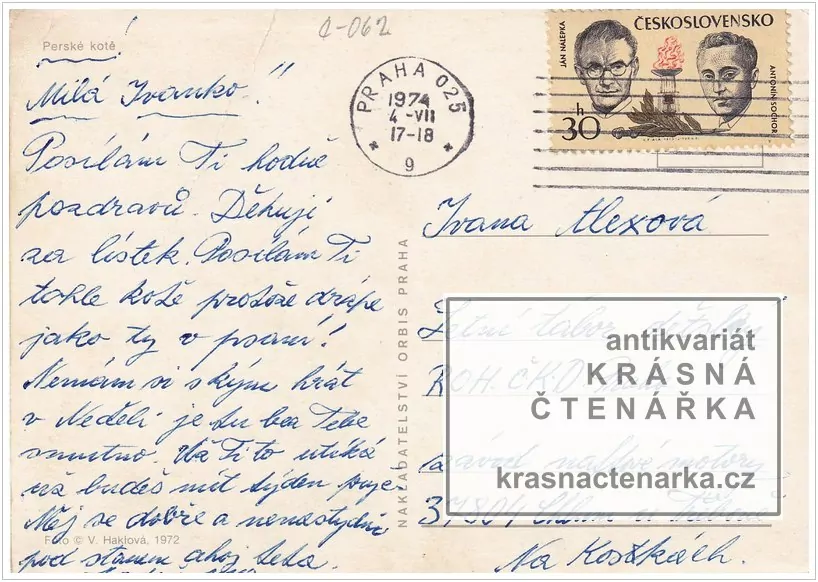 c-062
Perské kotě
Milá Ivanko!!
Posílám Ti hodně
pozdravů. Děkuji
za lístek. Posílám Ti
tohle kotě protože drápe
jako ty v psaní!
Nemám si s kým hrát
v Neděli je tu bez Tebe
smutno. Už Ti to utíká
už budeš mít týden pryč.
Měj se dobře a nenastydni
pod stanem ahoj
Foto © V. Haklová, 1972
NAKLADATELSTVÍ ORBIS PRAHA
PRAHA 025
1974
4-VII
17-18
9
ČESKOSLOVENSKO
JÁN NÁLEPKA
ANTONÍN SOCHOR
30 h
Ivana Alexová
Letní tábor
ROH. ČKD Praha
závod naftové motory
Na Kostkách.
antikvariát
KRÁSNÁ
ČTENÁŘKA
krasnactenarka.cz